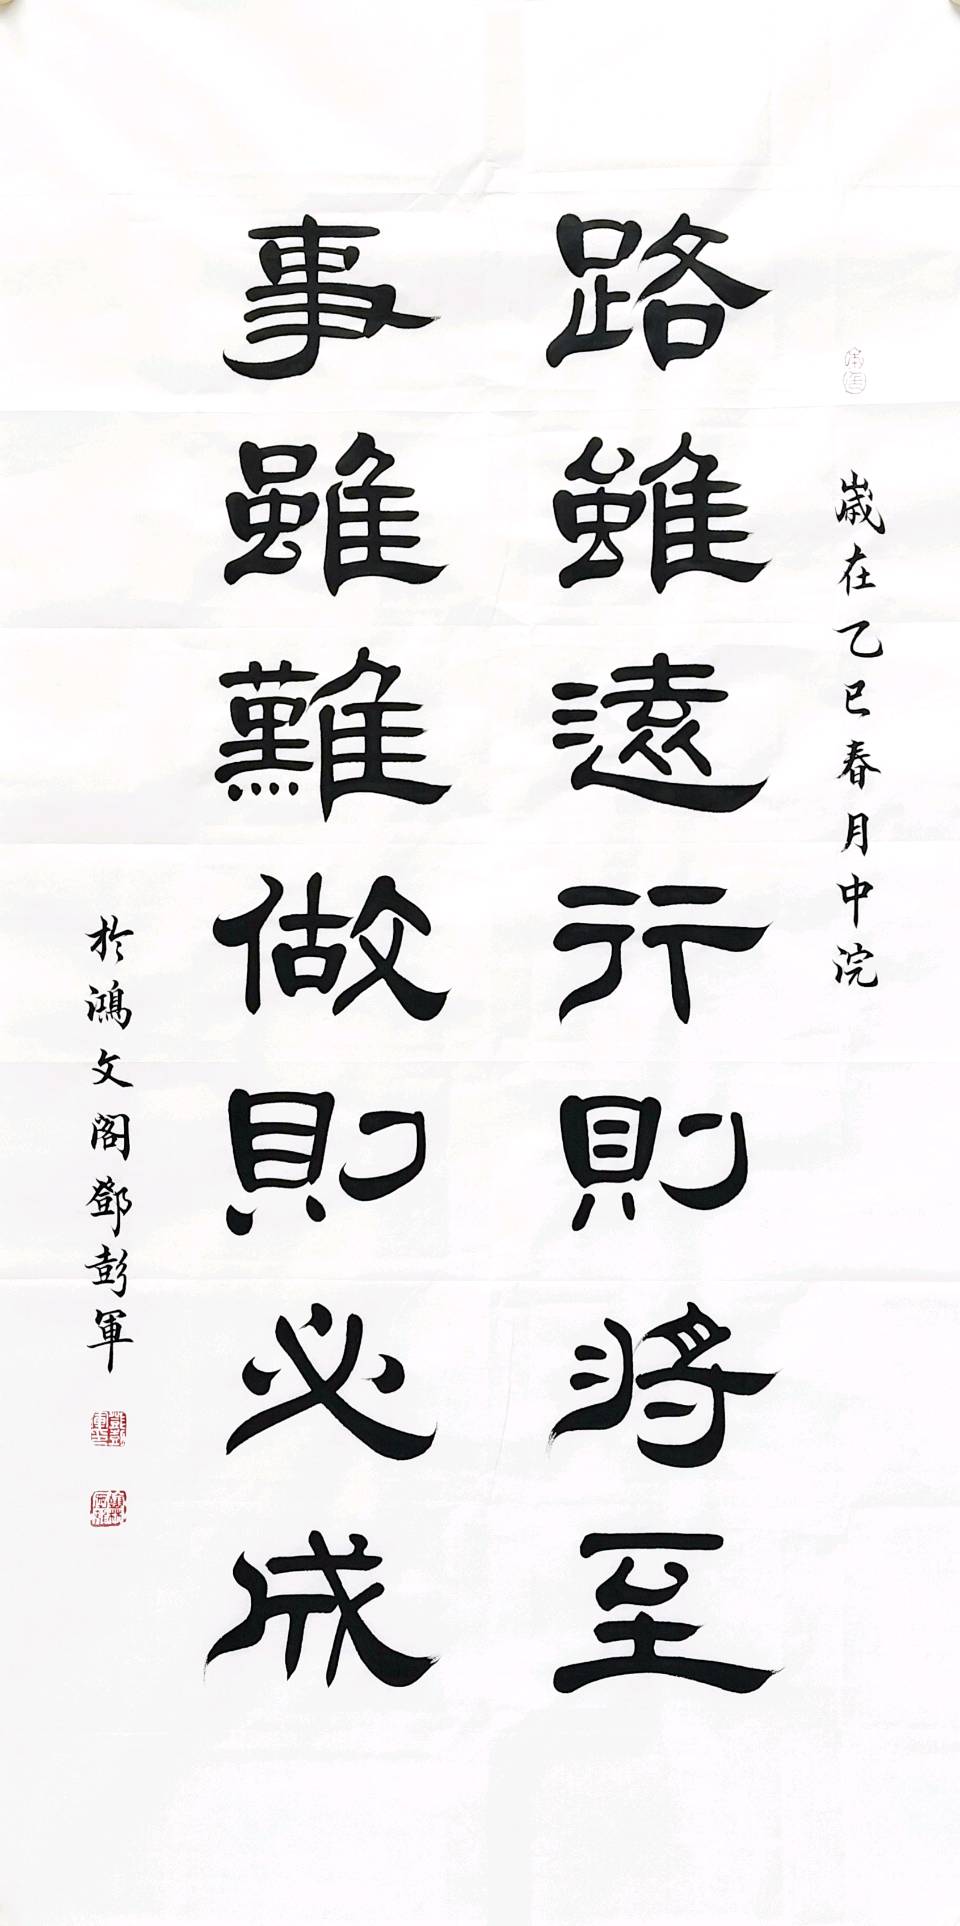 歲在乙巳春月中浣
路雖遠行則將至
事雖難做則必成
於鴻文閣鄧彭軍